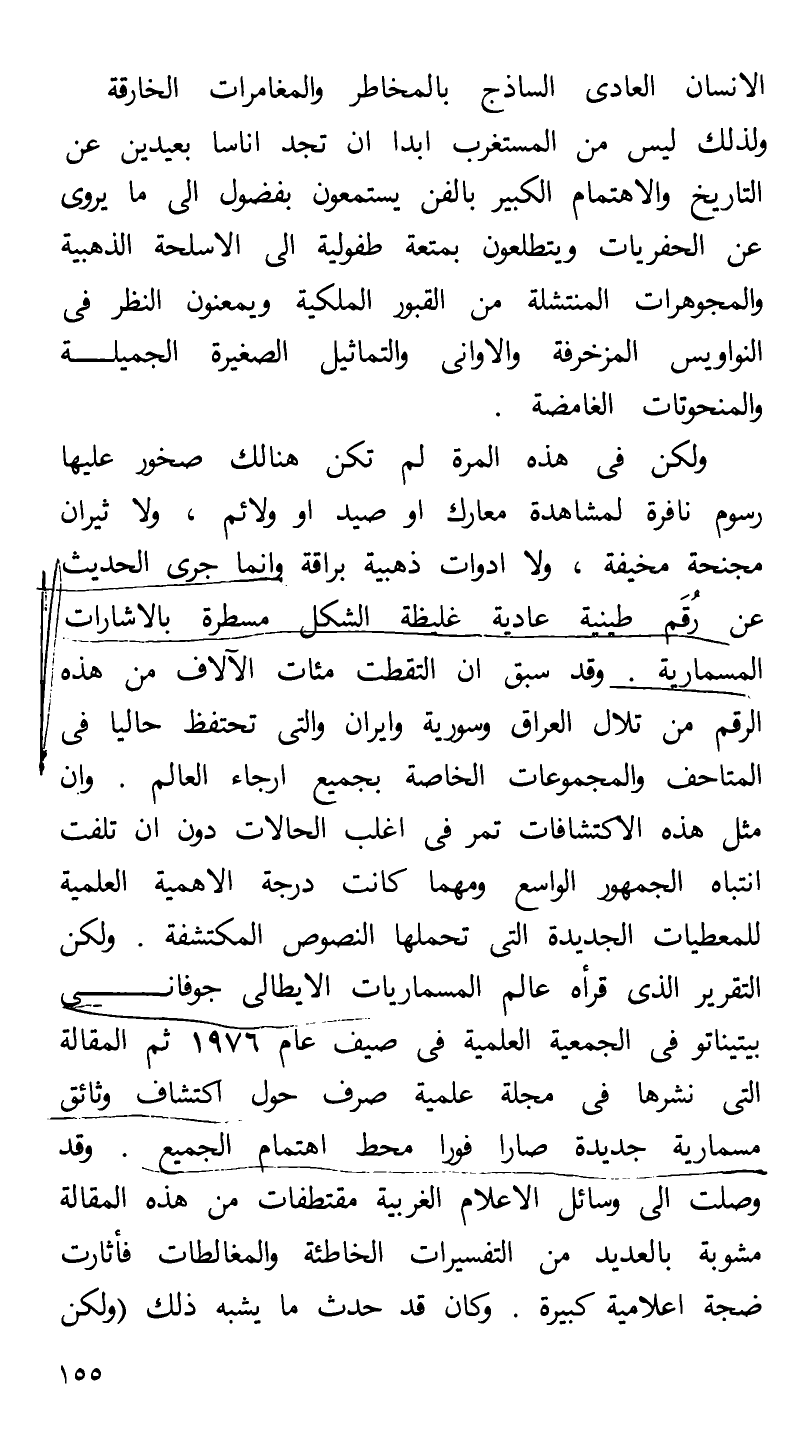 الانسان العادى الساذج بالمخاطر والمغامرات الخارقة
ولذلك ليس من المستغرب ابدا ان تجد اناسا بعيدين عن
التاريخ والاهتمام الكبير بالفن يستمعون بفضول الى ما يروى
عن الحفريات ويتطلعون بمتعة طفولية الى الاسلحة الذهبية
والمجوهرات المنتشلة من القبور الملكية ويمعنون النظر فى
النواويس المزخرفة والاوانى والتماثيل الصغيرة الجميلـــة
والمنحوتات الغامضة .
ولكن فى هذه المرة لم تكن هنالك صخور عليها
رسوم نافرة لمشاهدة معارك او صيد او ولائم ، ولا ثيران
مجنحة مخيفة ، ولا ادوات ذهبية براقة وانما جرى الحديث
عن رُقَم طينية عادية غليظة الشكل مسطرة بالاشارات
المسمارية . وقد سبق ان التقطت مئات الآلاف من هذه
الرقم من تلال العراق وسورية وايران والتى تحتفظ حاليا فى
المتاحف والمجموعات الخاصة بجميع ارجاء العالم . وان
مثل هذه الاكتشافات تمر فى اغلب الحالات دون ان تلفت
انتباه الجمهور الواسع ومهما كانت درجة الاهمية العلمية
للمعطيات الجديدة التى تحملها النصوص المكتشفة . ولكن
التقرير الذى قرأه عالم المسماريات الايطالى جوفانـــــى
بيتيناتو فى الجمعية العلمية فى صيف عام ١٩٧٦ ثم المقالة
التى نشرها فى مجلة علمية صرف حول اكتشاف وثائق
مسمارية جديدة صارا فورا محط اهتمام الجميع . وقد
وصلت الى وسائل الاعلام الغربية مقتطفات من هذه المقالة
مشوبة بالعديد من التفسيرات الخاطئة والمغالطات فأثارت
ضجة اعلامية كبيرة . وكان قد حدث ما يشبه ذلك (ولكن
١٥٥